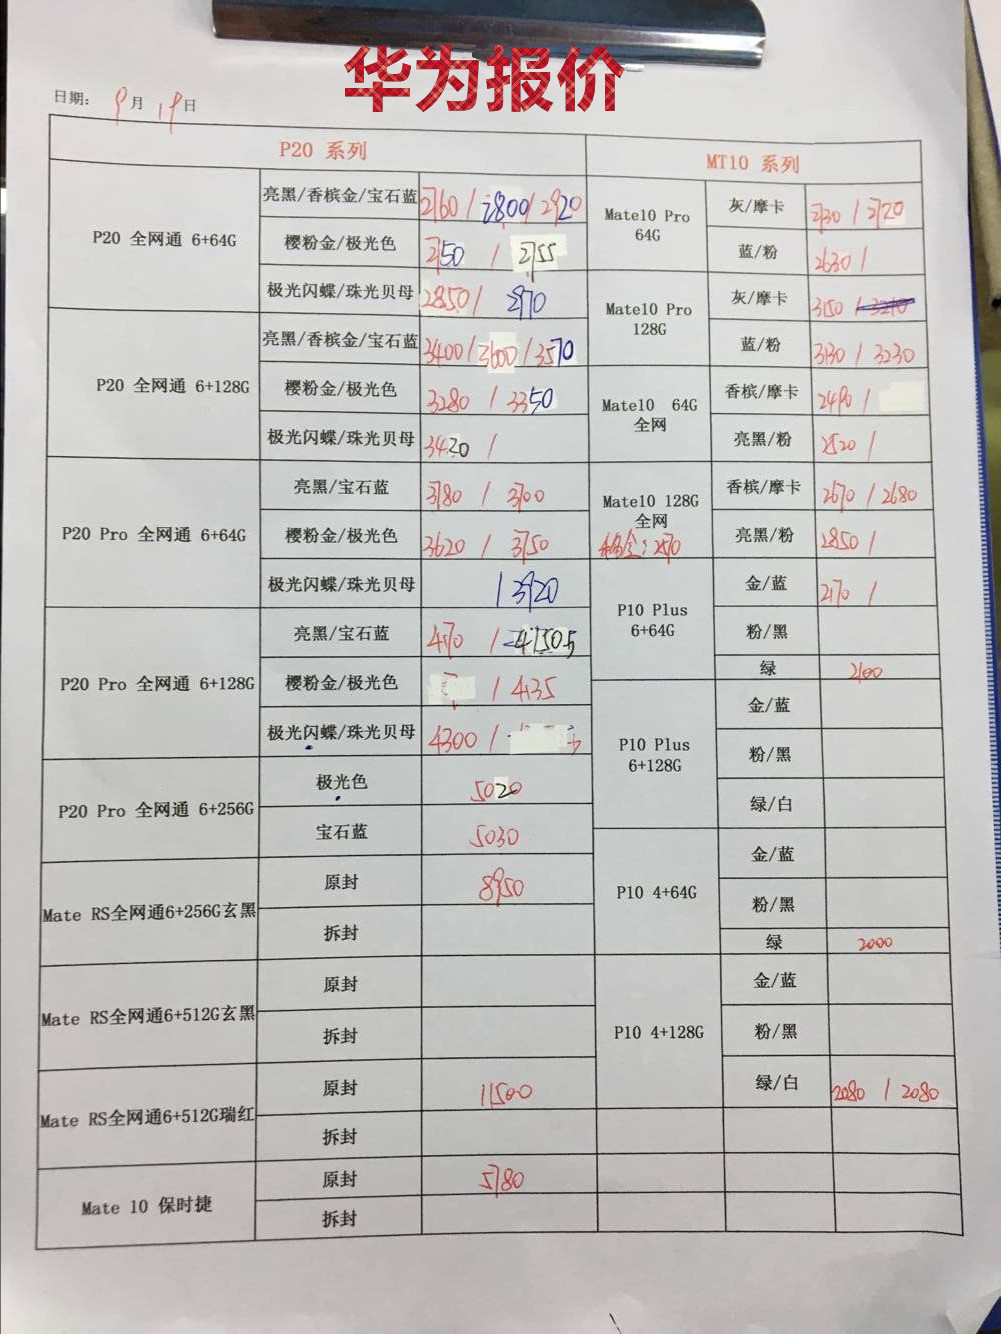 华为报价
日期: 9月 19日
P20 系列
MT10 系列
P20 全网通 6+64G
亮黑/香槟金/宝石蓝 2760 / 2800 / 2920
樱粉金/极光色 2750 / 2755
极光闪蝶/珠光贝母 2850 / 2970
P20 全网通 6+128G
亮黑/香槟金/宝石蓝 3400 / 3600 / 3570
樱粉金/极光色 3280 / 3350
极光闪蝶/珠光贝母 3420 /
P20 Pro 全网通 6+64G
亮黑/宝石蓝 3780 / 3700
樱粉金/极光色 3620 / 3750
极光闪蝶/珠光贝母 / 3920
P20 Pro 全网通 6+128G
亮黑/宝石蓝 4170 /
樱粉金/极光色 / 4135
极光闪蝶/珠光贝母 4300 /
P20 Pro 全网通 6+256G
极光色 5020
宝石蓝 5030
Mate RS全网通6+256G玄黑
原封 8950
拆封
Mate RS全网通6+512G玄黑
原封
拆封
Mate RS全网通6+512G瑞红
原封 11500
拆封
Mate 10 保时捷
原封 5780
拆封
Mate10 Pro
64G
灰/摩卡 2730 / 2720
蓝/粉 2630 /
Mate10 Pro
128G
灰/摩卡 3150 /
蓝/粉 3130 / 3230
Mate10 64G
全网
香槟/摩卡 2490 /
亮黑/粉 2520 /
Mate10 128G
全网
香槟/摩卡 2670 / 2680
亮黑/粉 2850 /
P10 Plus
6+64G
金/蓝 2170 /
粉/黑
绿 2100
P10 Plus
6+128G
金/蓝
粉/黑
绿/白
P10 4+64G
金/蓝
粉/黑
绿 2000
P10 4+128G
金/蓝
粉/黑
绿/白 2080 / 2080